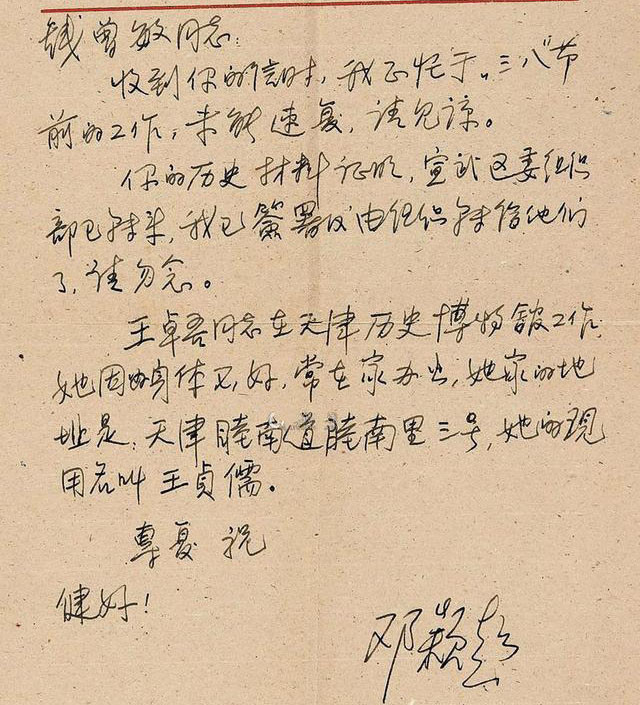 钱曾敏同志:
收到你的信时,我正忙于"三八"节
前的工作,未能速复,请见谅。
你的历史材料证明,宣武区委组织
部已转来,我已签署后由组织转给他们
了,请勿念。
王卓吾同志在天津历史博物馆工作,
她因为身体不好,常在家办公,她家的地
址是:天津睦南道睦南里三号,她的现
用名叫王贞儒。
专复 祝
健好!
邓颖超